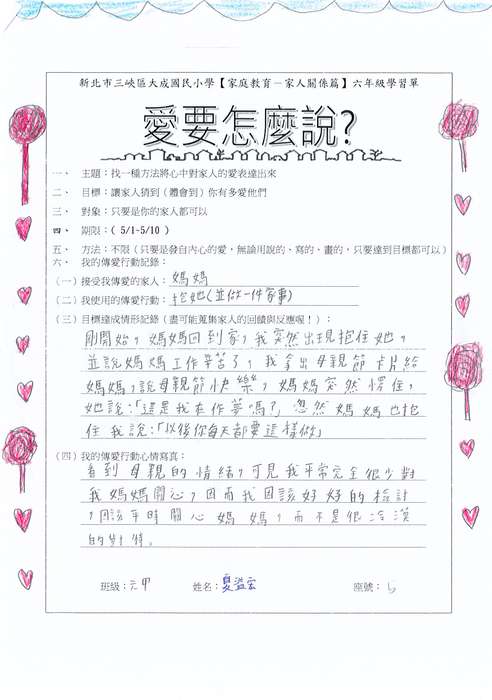 新北市三峽區大成國民小學【家庭教育－家人關係篇】六年級學習單
愛要怎麼說?
一、 主題：找一種方法將心中對家人的愛表達出來
二、 目標：讓家人猜到（體會到）你有多愛他們
三、 對象：只要是你的家人都可以
四、 期限：( 5/1~5/10 )
五、 方法：不限（只要是發自內心的愛，無論用說的、寫的、畫的，只要達到目標都可以）
六、 我的傳愛行動記錄：
（一）接受我傳愛的家人：媽媽
（二）我使用的傳愛行動：抱她(並做一件家事)
（三）目標達成情形記錄（盡可能蒐集家人的回饋與反應喔！）：
剛開始，媽媽回到家，我突然出現抱住她，
並說媽媽工作辛苦了，我拿出母親節卡片給
媽媽，說母親節快樂，媽媽突然愣住，
她說：「這是我在作夢嗎?」忽然媽媽也抱
住我說：「以後你每天都要這樣做」
（四）我的傳愛行動心情寫真：
看到母親的情緒，可見我平常完全很少對
我媽媽關心，因而我因該好好的檢討
，因該平時關心媽媽，而不是很冷漠
的對待。
班級：六甲 姓名：夏溢宏 座號：5